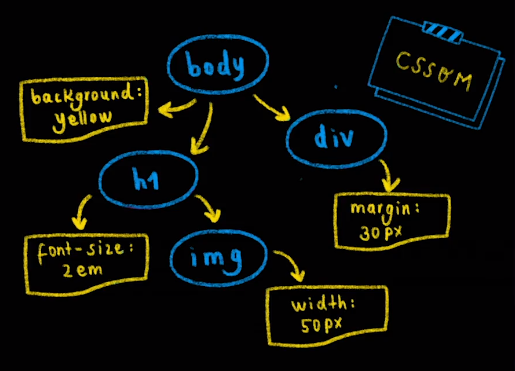 CSSOM
body
background:
yellow
div
h1
margin:
30px
font-size:
2em
img
width:
50px